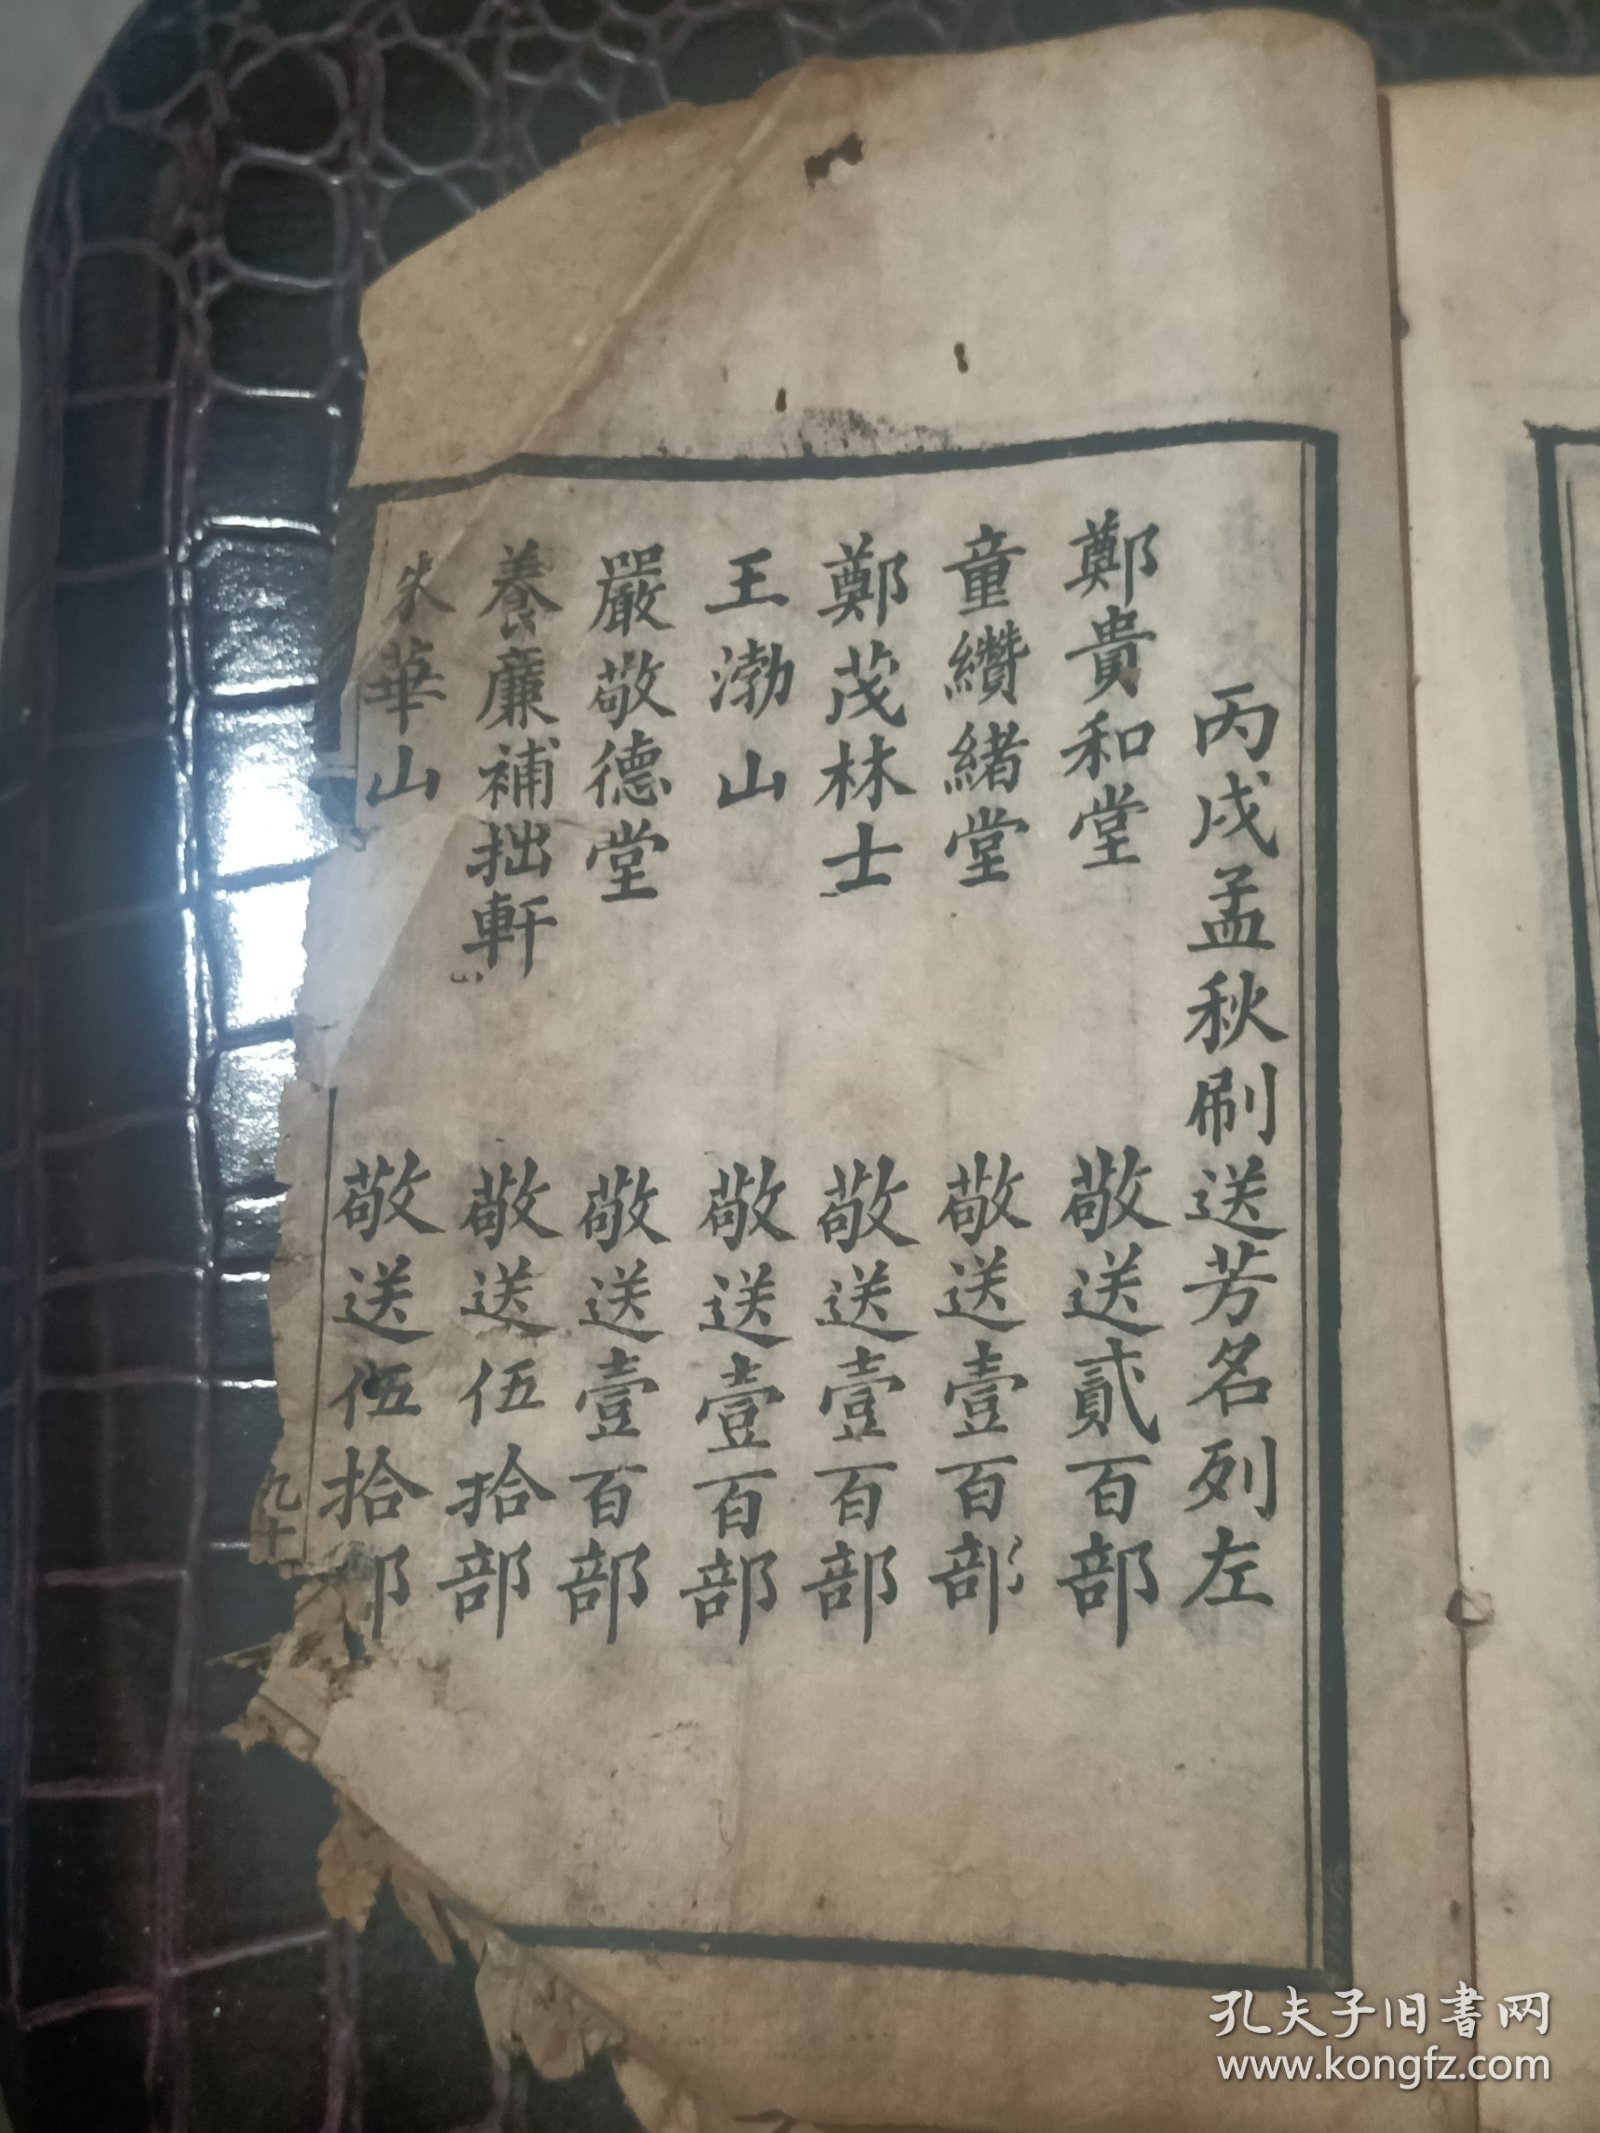 丙戌孟秋刷送芳名列左
鄭貴和堂 敬送貳百部
童纘緒堂 敬送壹百部
鄭茂林士 敬送壹百部
王渤山 敬送壹百部
嚴敬德堂 敬送壹百部
養廉補拙軒 敬送伍拾部
朱華山 敬送伍拾部
九十
孔夫子旧书网
www.kongfz.com